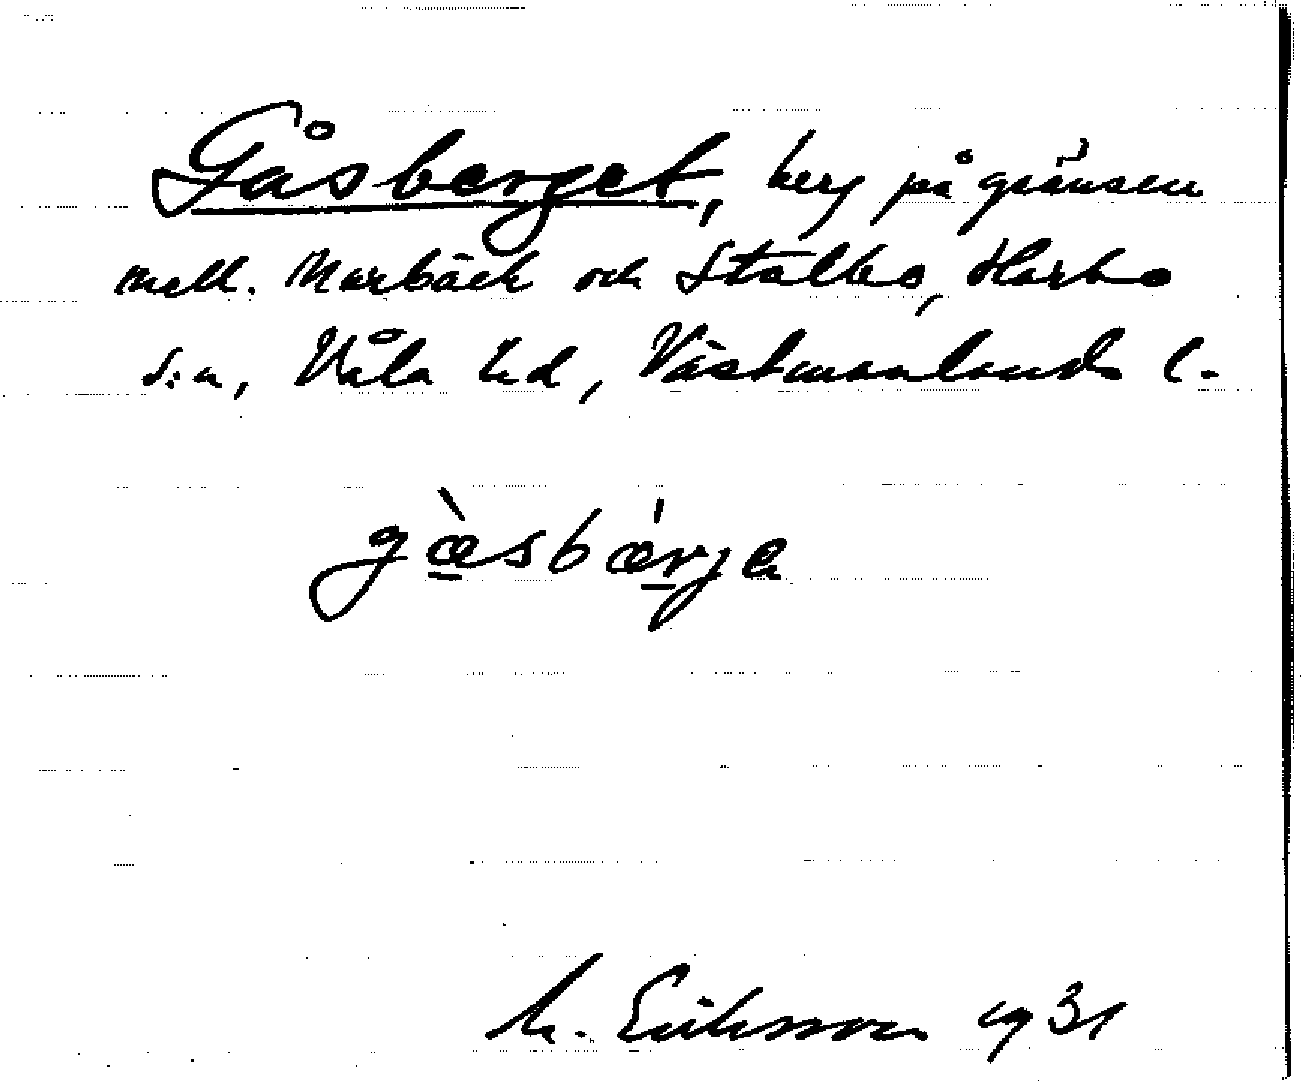 Gåsberget, berg på gränsen
mell. Murbäck och Stalbo, Harbo
s:n, Våla hd, Västmanlands l.
gæ̀sbǽrjа
M. Eriksson 1931